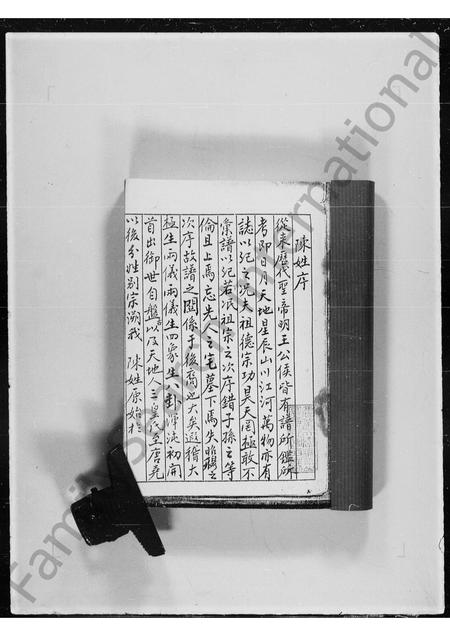 陳姓序
從來歷代聖帝明王公侯皆有譜所鑑所
考即日月天地星辰山川江河萬物亦有
誌以紀之况夫祖德宗功昊天罔極敢不
彙譜以紀若泯祖宗之次序錯子孫之等
倫且上焉忘先人之宅墓下焉失昭穆之
次序故譜之關係于後裔也大矣遐稽太
極生兩儀兩儀生四象生八卦渾沌初開
首出御世自盤古以及天地人三皇至唐堯
以後分姓別宗溯我 陳姓原始於
Family Search International